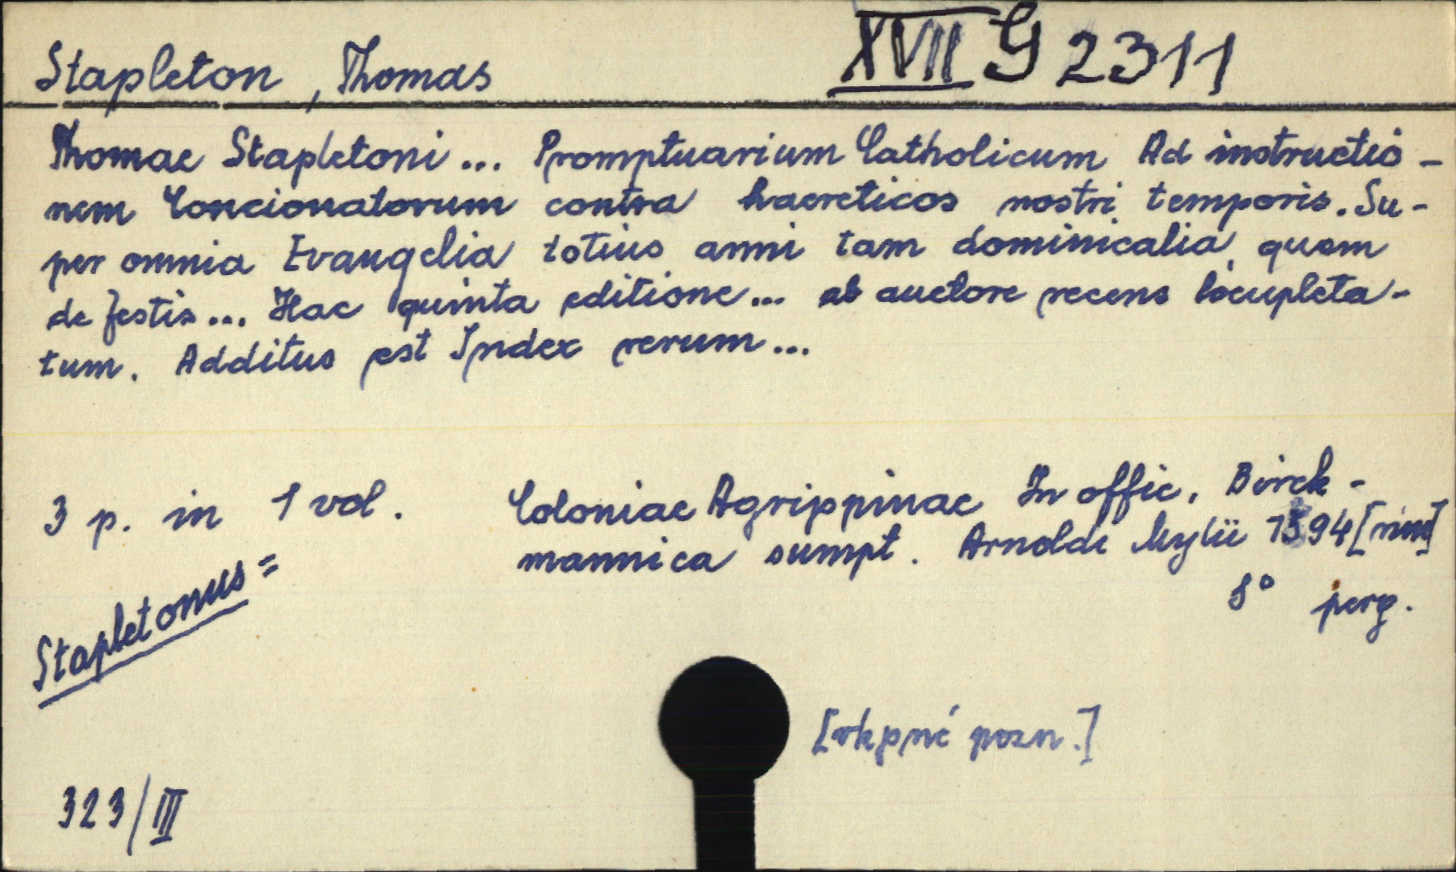 Stapleton, Thomas
XVII G 2311
Thomae Stapletoni ... Promptuarium Catholicum Ad instructio-
nem Concionatorum contra haereticos nostri temporis. Su-
per omnia Evangelia totius anni tam dominicalia quam
de festis ... Hac quinta editione ... ab auctore recens locupleta-
tum. Additus est Index rerum ...
3 p. in 1 vol.
Coloniae Agrippinae In offic. Birck-
mannica sumpt. Arnoldi Mylii 1594 [rim]
8° perg.
Stapletonus =
[rkpné pozn.]
323/III